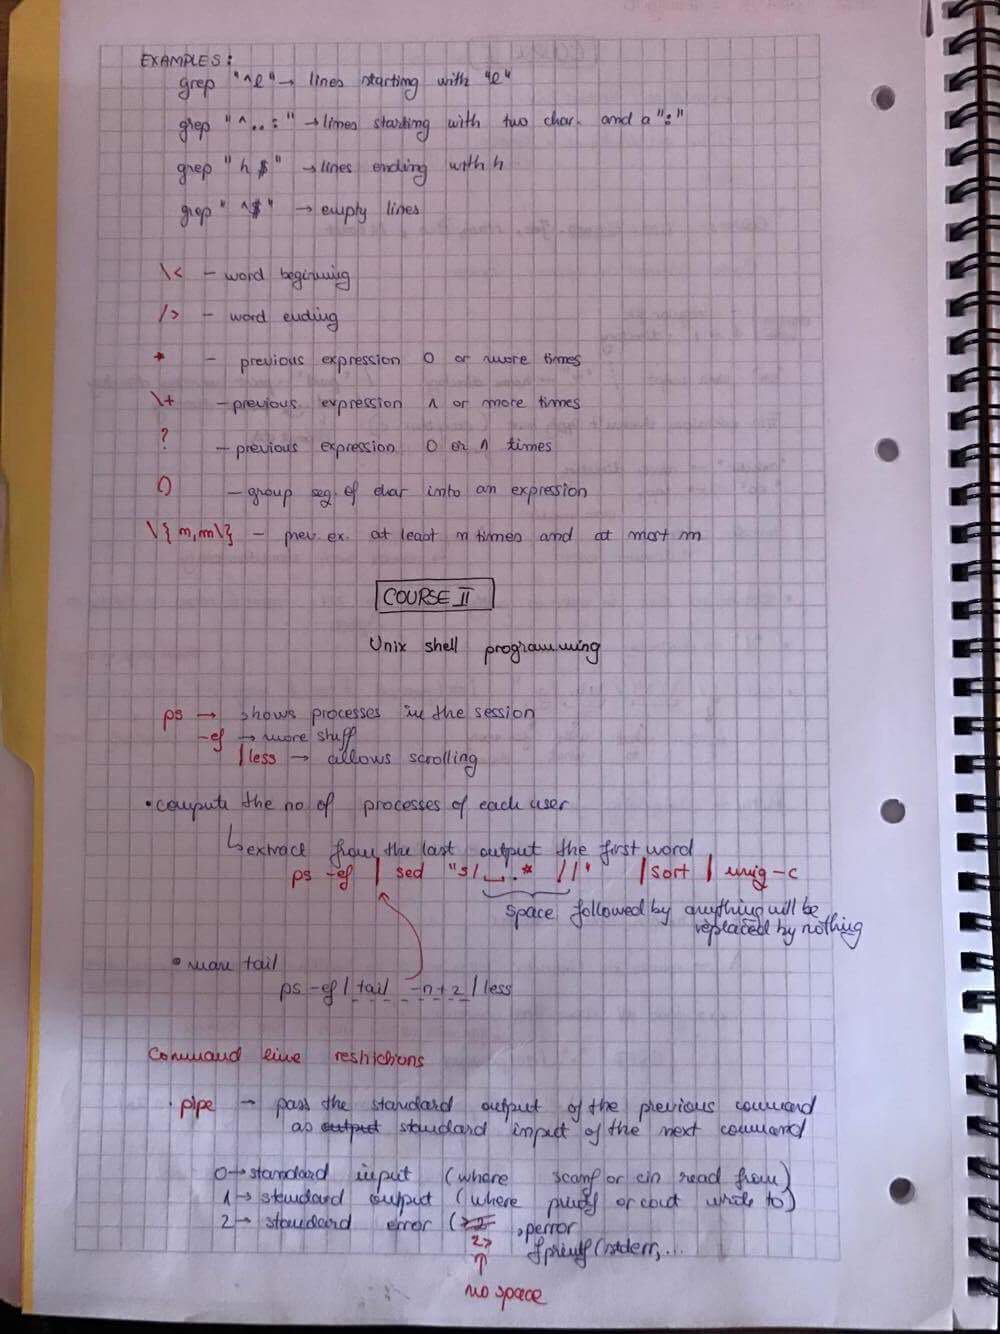 EXAMPLES:
grep "^e" → lines starting with "e"
grep "^..:" → lines starting with two char. and a ":"
grep "h$" → lines ending with h
grep "^$" → empty lines
\< - word beginning
/> - word ending
* - previous expression 0 or more times
\+ - previous expression 1 or more times
? - previous expression 0 or 1 times
() - group seq. of char into an expression
\{m,m\} - prev. ex. at least m times and at most m
COURSE II
Unix shell programming
ps → shows processes in the session
-ef → more stuff
|less → allows scrolling
• compute the no of processes of each user
↳ extract from the last output the first word
ps -ef | sed "s/␣.*//" | sort | uniq -c
space followed by anything will be
replaced by nothing
• man tail
ps -ef | tail -n+2 | less
Command line restrictions
• pipe → pass the standard output of the previous command
as output standard input of the next command
0 → standard input (where scanf or cin read from)
1 → standard output (where printf or cout write to)
2 → standard error (>2 , perror
2> fprintf(stderr, ...
↑
no space